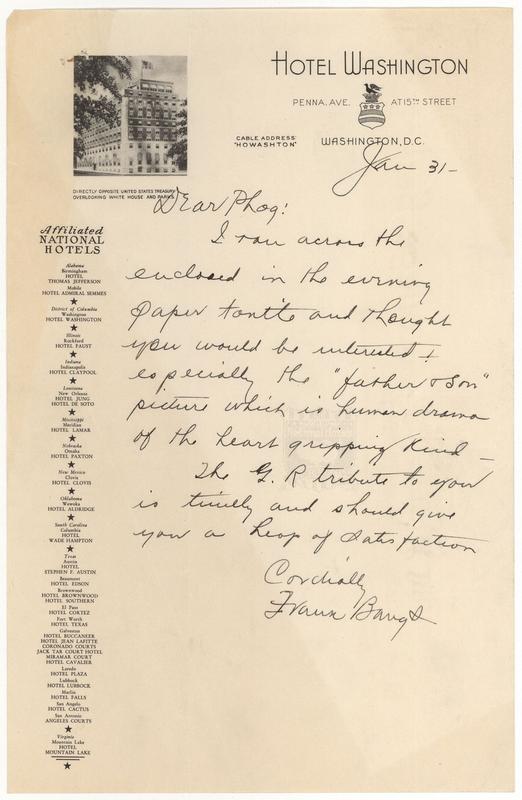 HOTEL WASHINGTON
PENNA. AVE. AT 15TH STREET
CABLE ADDRESS
"HOWASHTON"
WASHINGTON, D.C.
DIRECTLY OPPOSITE UNITED STATES TREASURY
OVERLOOKING WHITE HOUSE AND PARKS
Jan 31-
Dear Phog!
I ran across the
enclosed in the evening
paper tonite and thought
you would be interested &
especially the "father & son"
picture which is human drama
of the heart gripping kind -
The G. R tribute to you
is timely and should give
you a heap of satisfaction
Cordially
Affiliated
NATIONAL
HOTELS
Alabama
Birmingham
HOTEL
THOMAS JEFFERSON
Mobile
HOTEL ADMIRAL SEMMES
District of Columbia
Washington
HOTEL WASHINGTON
Illinois
Rockford
HOTEL FAUST
Indiana
Indianapolis
HOTEL CLAYPOOL
Louisiana
New Orleans
HOTEL JUNG
HOTEL DE SOTO
Mississippi
Meridian
HOTEL LAMAR
Nebraska
Omaha
HOTEL PAXTON
New Mexico
Clovis
HOTEL CLOVIS
Oklahoma
Wewoka
HOTEL ALDRIDGE
South Carolina
Columbia
HOTEL
WADE HAMPTON
Texas
Austin
HOTEL
STEPHEN F. AUSTIN
Beaumont
HOTEL EDSON
Brownwood
HOTEL BROWNWOOD
HOTEL SOUTHERN
El Paso
HOTEL CORTEZ
Fort Worth
HOTEL TEXAS
Galveston
HOTEL BUCCANEER
HOTEL JEAN LAFITTE
CORONADO COURTS
JACK TAR COURT HOTEL
MIRAMAR COURT
HOTEL CAVALIER
Laredo
HOTEL PLAZA
Lubbock
HOTEL LUBBOCK
Marlin
HOTEL FALLS
San Angelo
HOTEL CACTUS
San Antonio
ANGELES COURTS
Virginia
Mountain Lake
HOTEL
MOUNTAIN LAKE